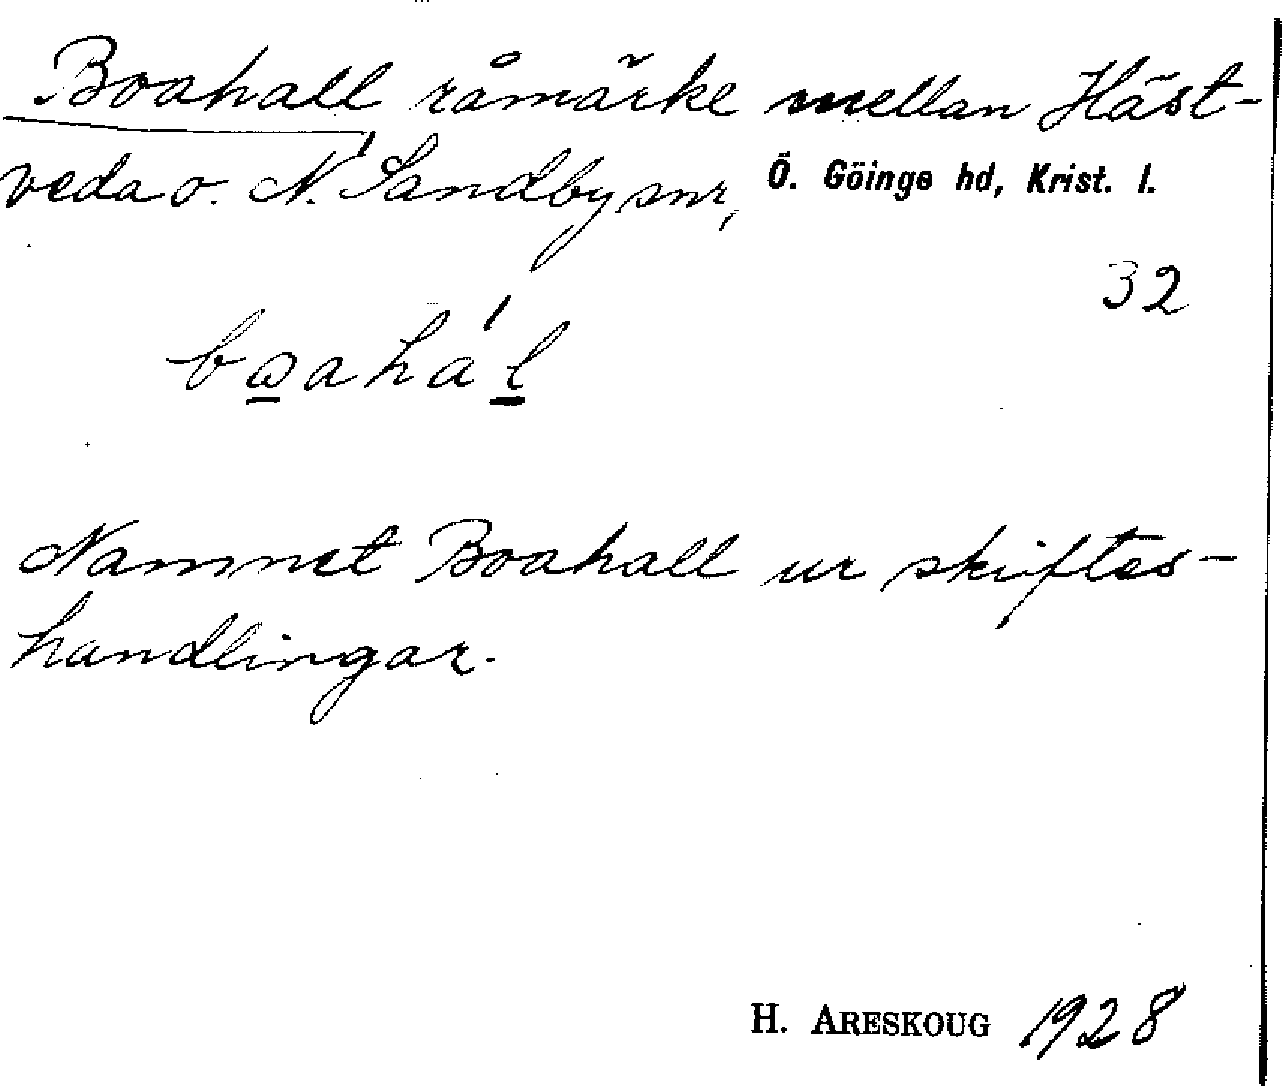 Boahall råmärke mellan Häst-
veda o. N. Sandby snr, Ö. Göinge hd, Krist. l.
32
bωaha'l
Namnet Boahall ur skiftes-
handlingar.
H. ARESKOUG 1928